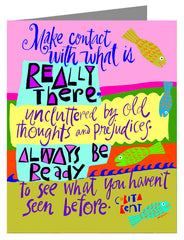 Make contact
with what is
REALLY
There.
uncluttered by old
Thoughts and prejudices.
ALWAYS BE
Ready
to see what you haven't
seen before.
CORITA
KENT